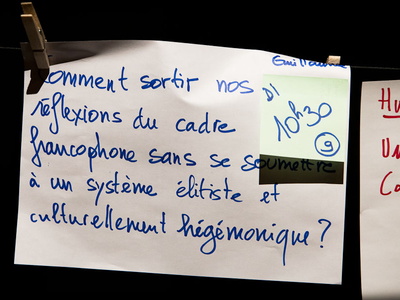 Guillaume
Comment sortir nos
réflexions du cadre
francophone sans se soumettre
à un système élitiste et
culturellement hégémonique ?
D1
10h30
9